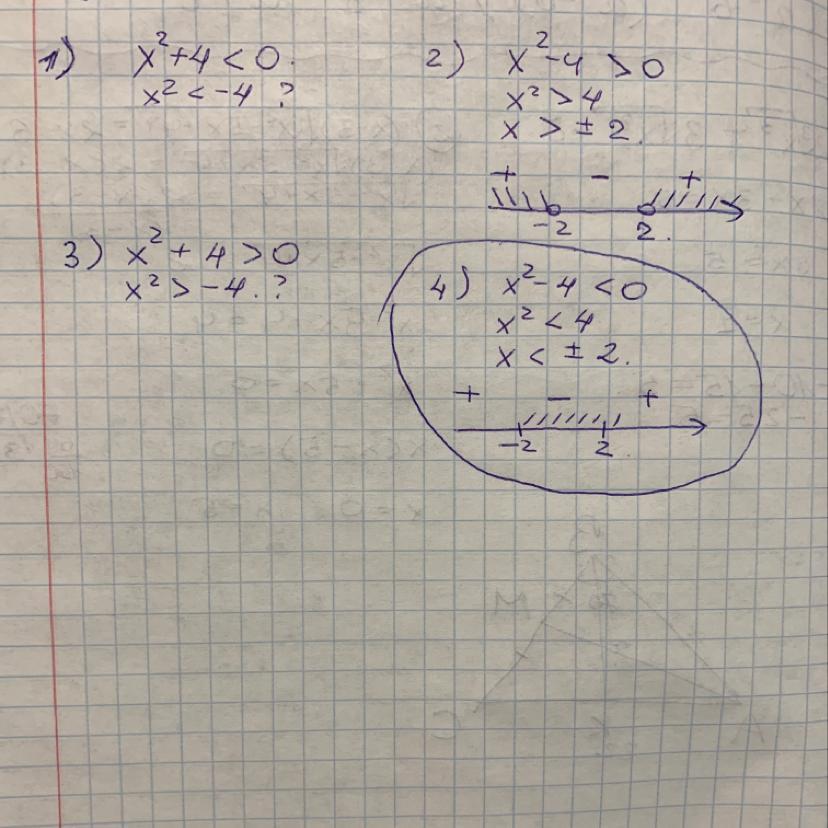 1) x²+4 < 0.
x² < -4 ?
2) x²-4 > 0
x² > 4
x > ± 2.
+ - +
-2 2.
3) x² + 4 > 0
x² > -4. ?
4) x² - 4 < 0
x² < 4
x < ± 2.
+ - +
-2 2.